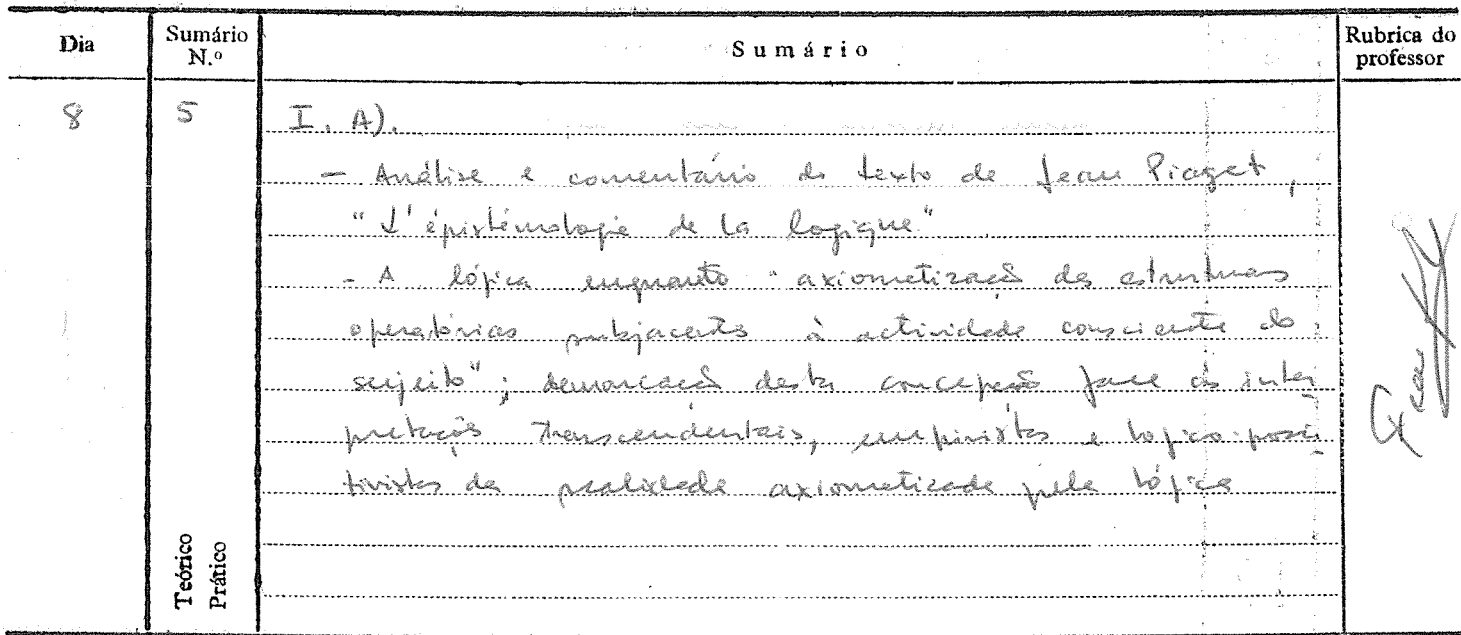 Dia
Sumário N.º
Sumário
Rubrica do professor
8
5
I. A).
- Análise e comentário do texto de Jean Piaget,
"L'épistémologie de la logique"
- A lógica enquanto "axiomatização das estruturas
operatórias subjacentes à actividade consciente do
sujeito"; demarcação desta concepção face às inter
pretações transcendentais, empiristas e logico-posi
tivistas da realidade axiomatizada pela lógica
Teórico
Prático